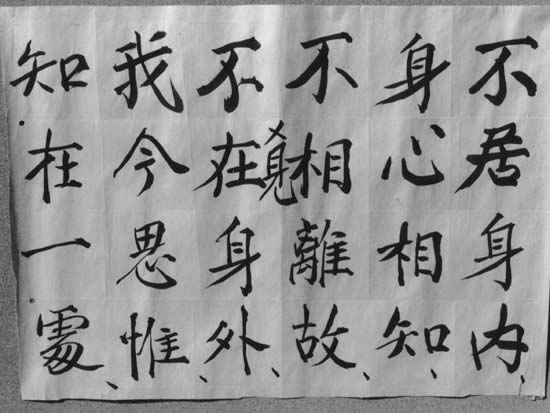 不居身内、
身心相知、
不相離故、
不在身外、
我今思惟、
知在一處